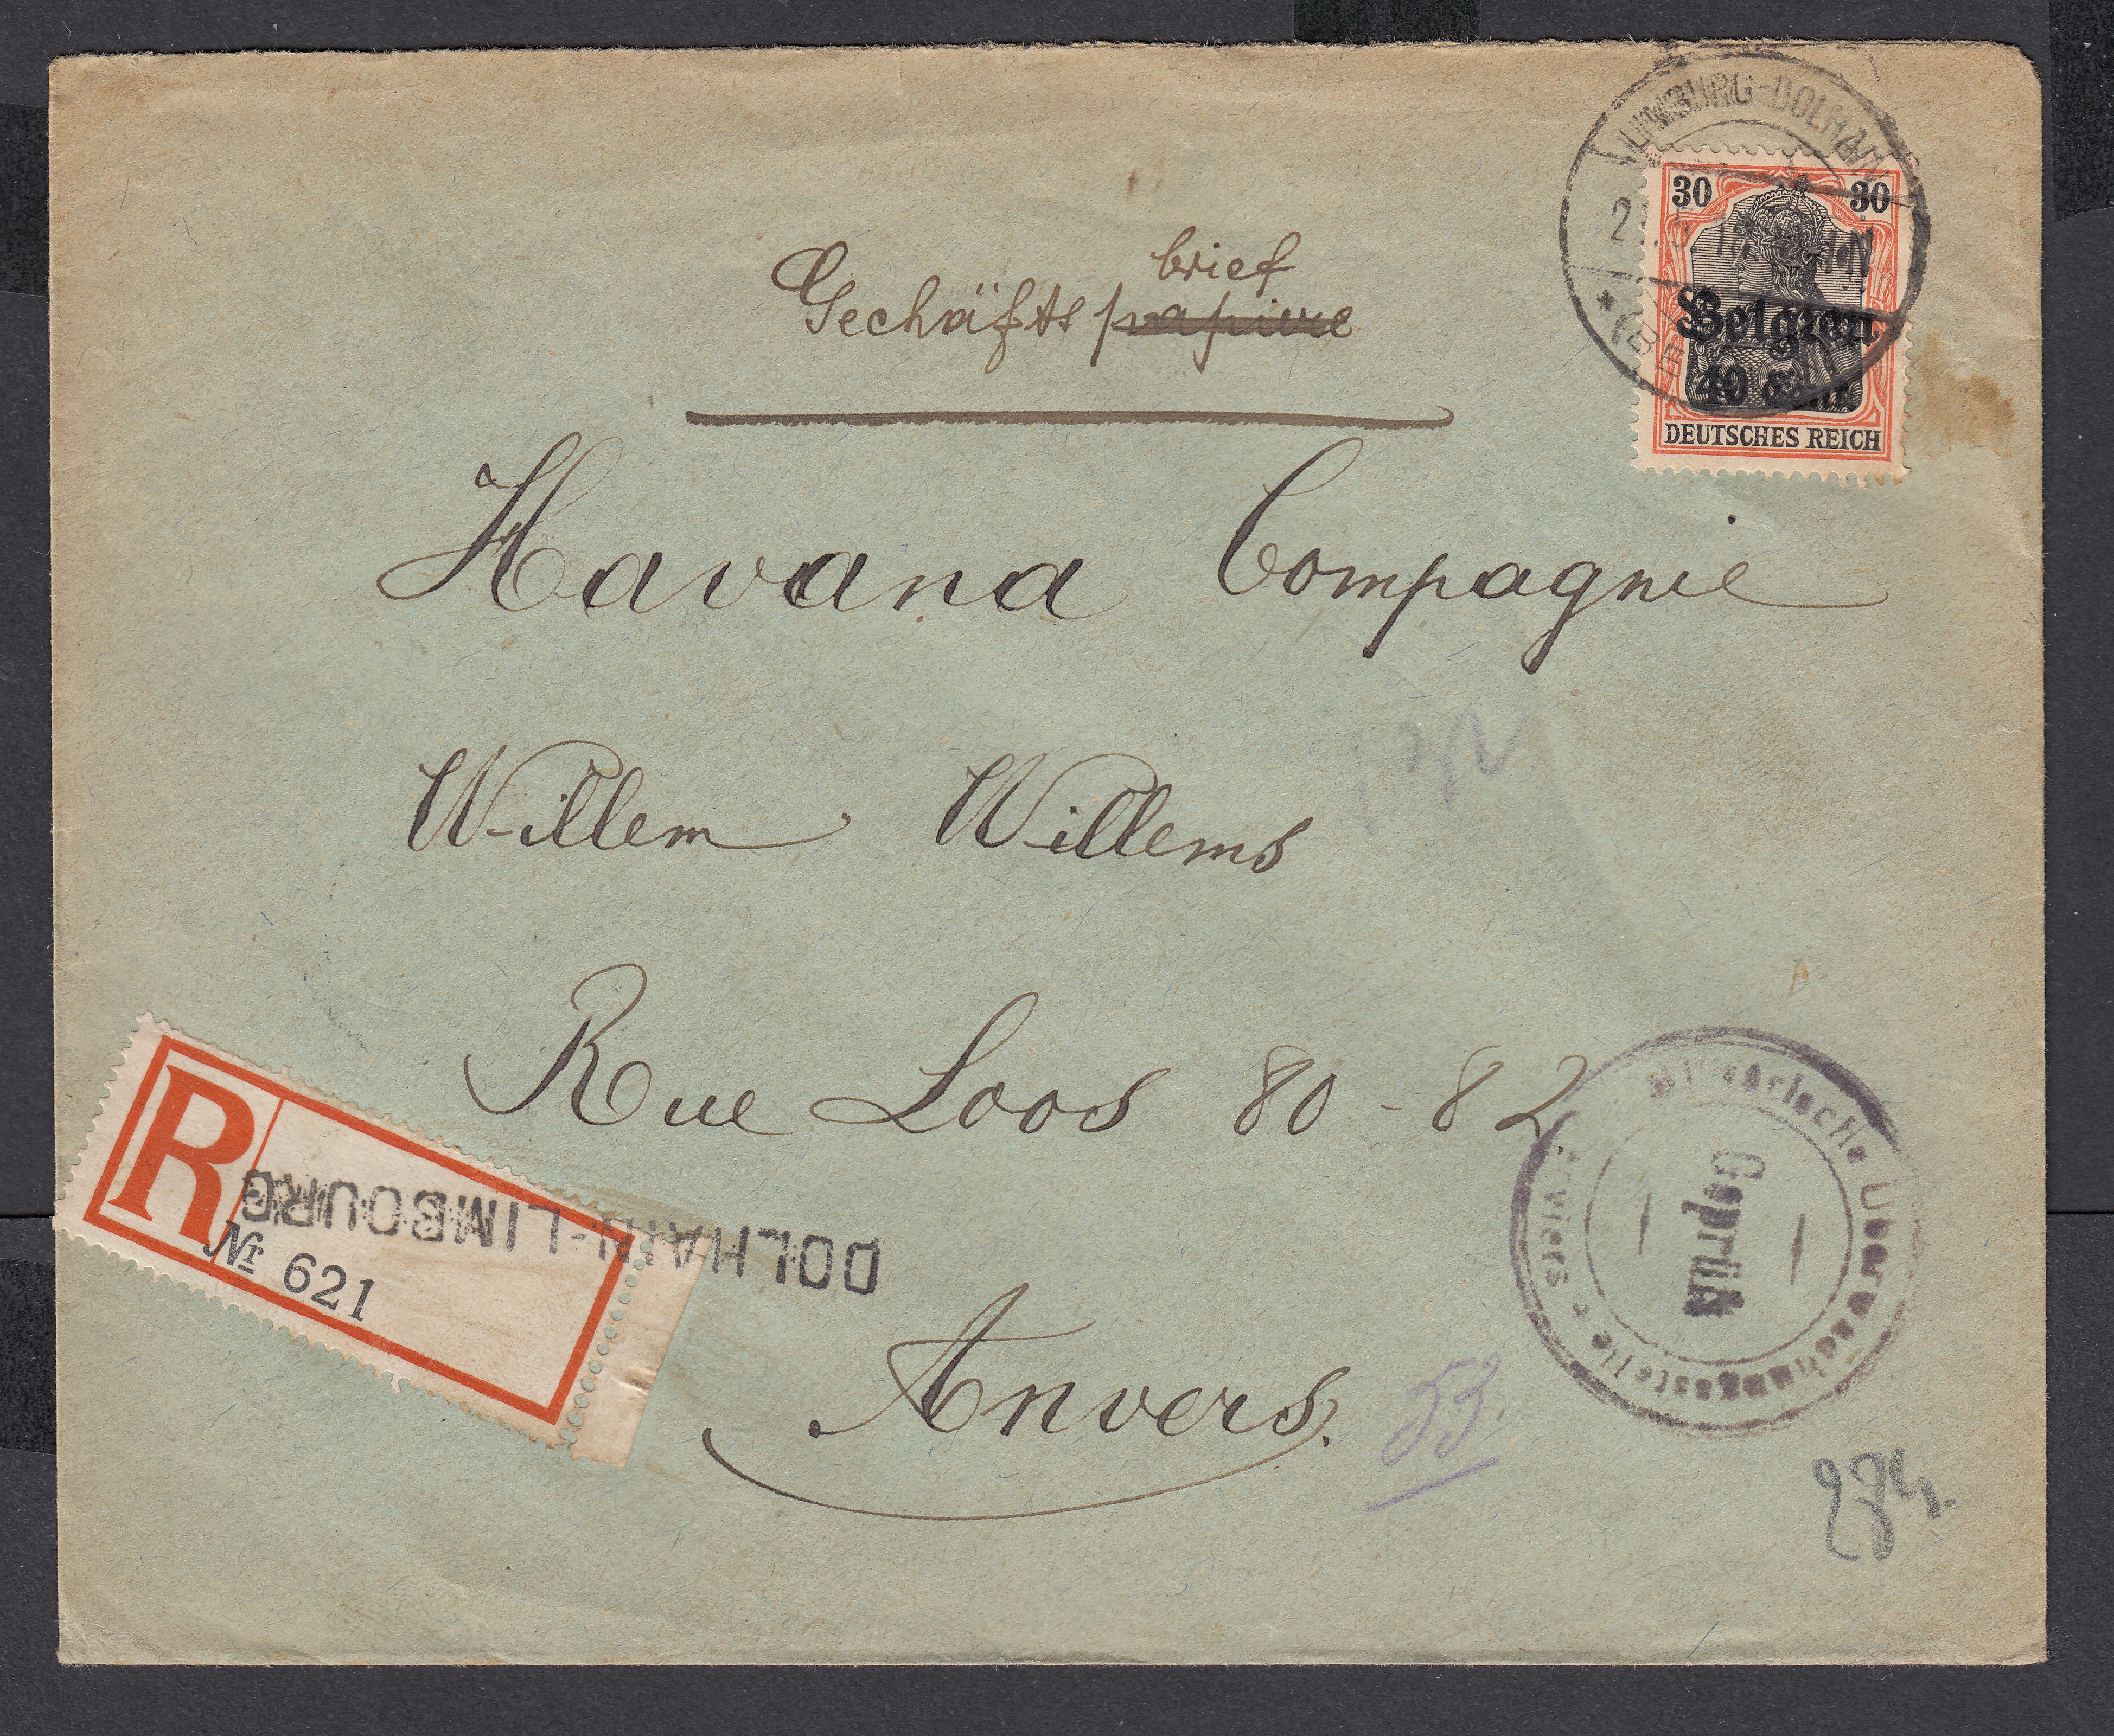 LIMBURG-DOLHAIN
30 30
Belgien
40 Cent.
DEUTSCHES REICH
brief
Gechäfts papiere
Havana Compagnie
Willem Willems
Rue Loos 80-82
Anvers.
R
DOLHAIN-LIMBOURG
№ 621
Militärische Überwachungsstelle * Verviers
Geprüft
53.
284